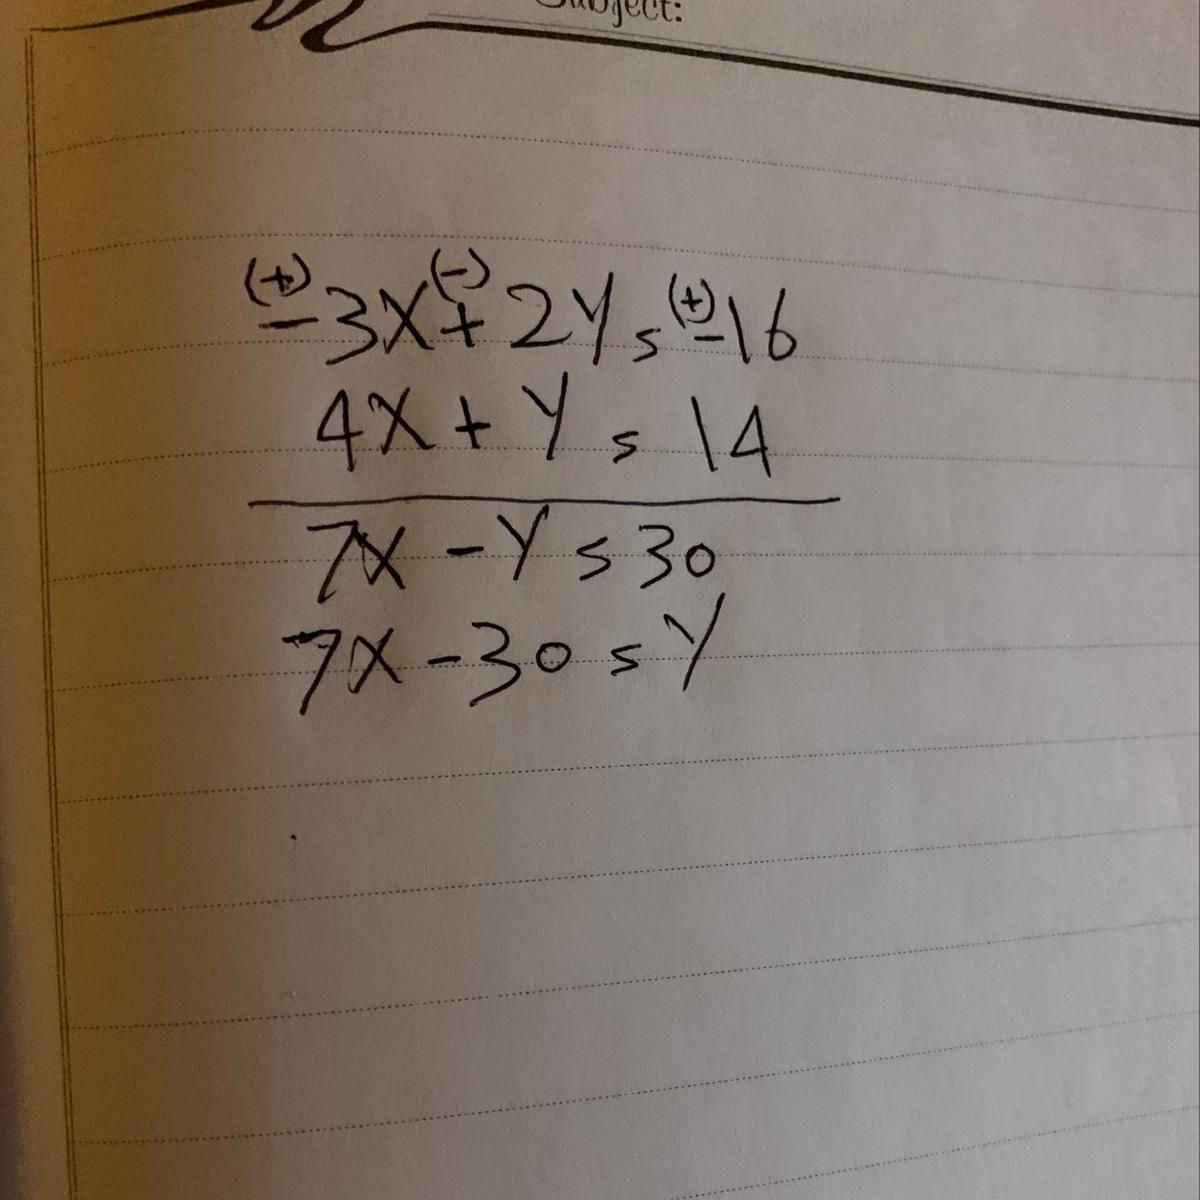 Subject:
(+) (-) (+)
-3X + 2Y = -16
4X + Y = 14
7X - Y = 30
7X - 30 = Y